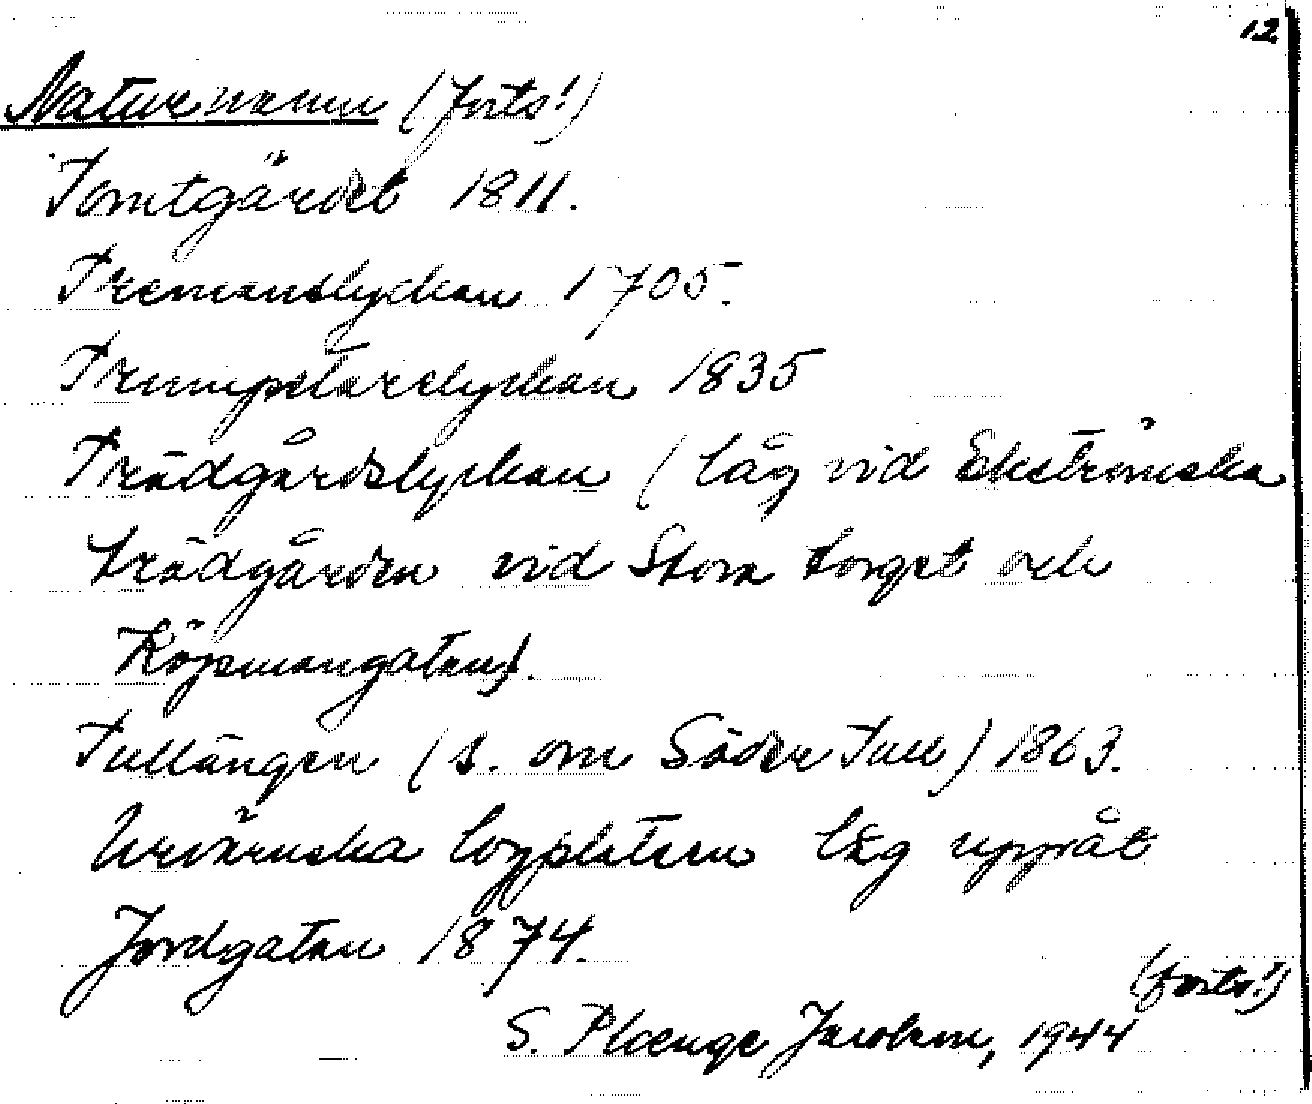 12
Naturnamn (forts!)
Tomtgärdet 1811.
Tremanslyckan 1705.
Trumpetarelyckan 1835
Trädgårdslyckan (låg vid Ekströmska
trädgården vid Stora torget och
Köpmangatan).
Tullängen (s. om Söder Tull) 1863.
loyplatsen låg uppåt
Jordgatan 1874.
(forts!)
S. Ploenge Jacobson, 1944